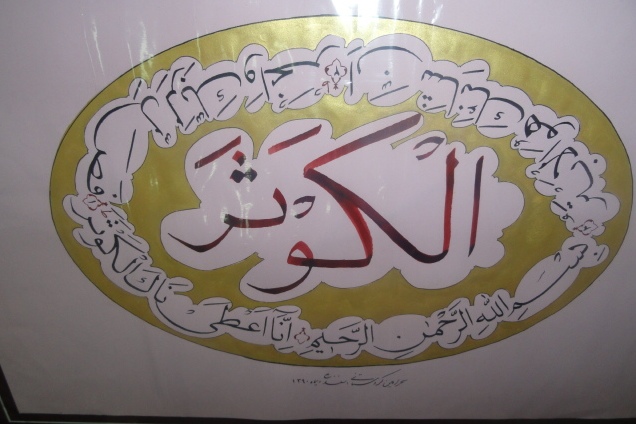 الْكَوْثَرَ
بِسْمِ اللهِ الرَّحْمٰنِ الرَّحِيمِ
اِنَّا اَعْطَيْناكَ الْكَوْثَرَ
فَصَلِّ لِرَبِّكَ وَانْحَرْ
اِنَّ شَانِئَكَ هُوَ الْاَبْتَرُ